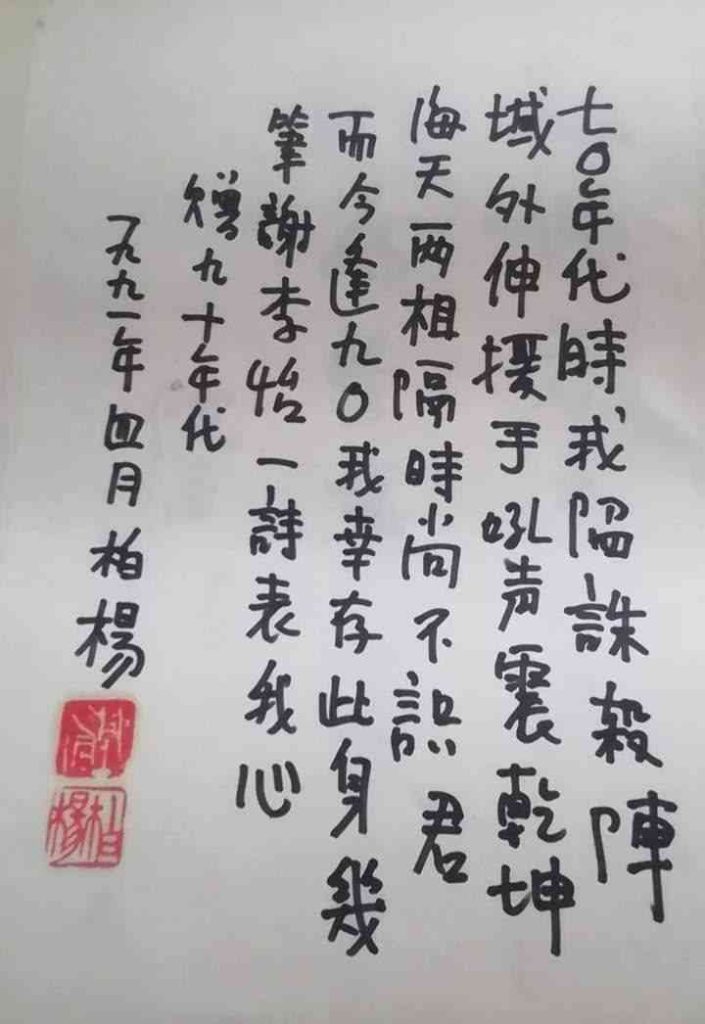 七〇年代時我陷誅殺陣
域外伸援手吼声震乾坤
海天兩相隔時尚不识君
而今逢九〇我幸存此身幾
筆謝李怡一詩表我心
贈九十年代
一九九一年四月柏楊
柏楊